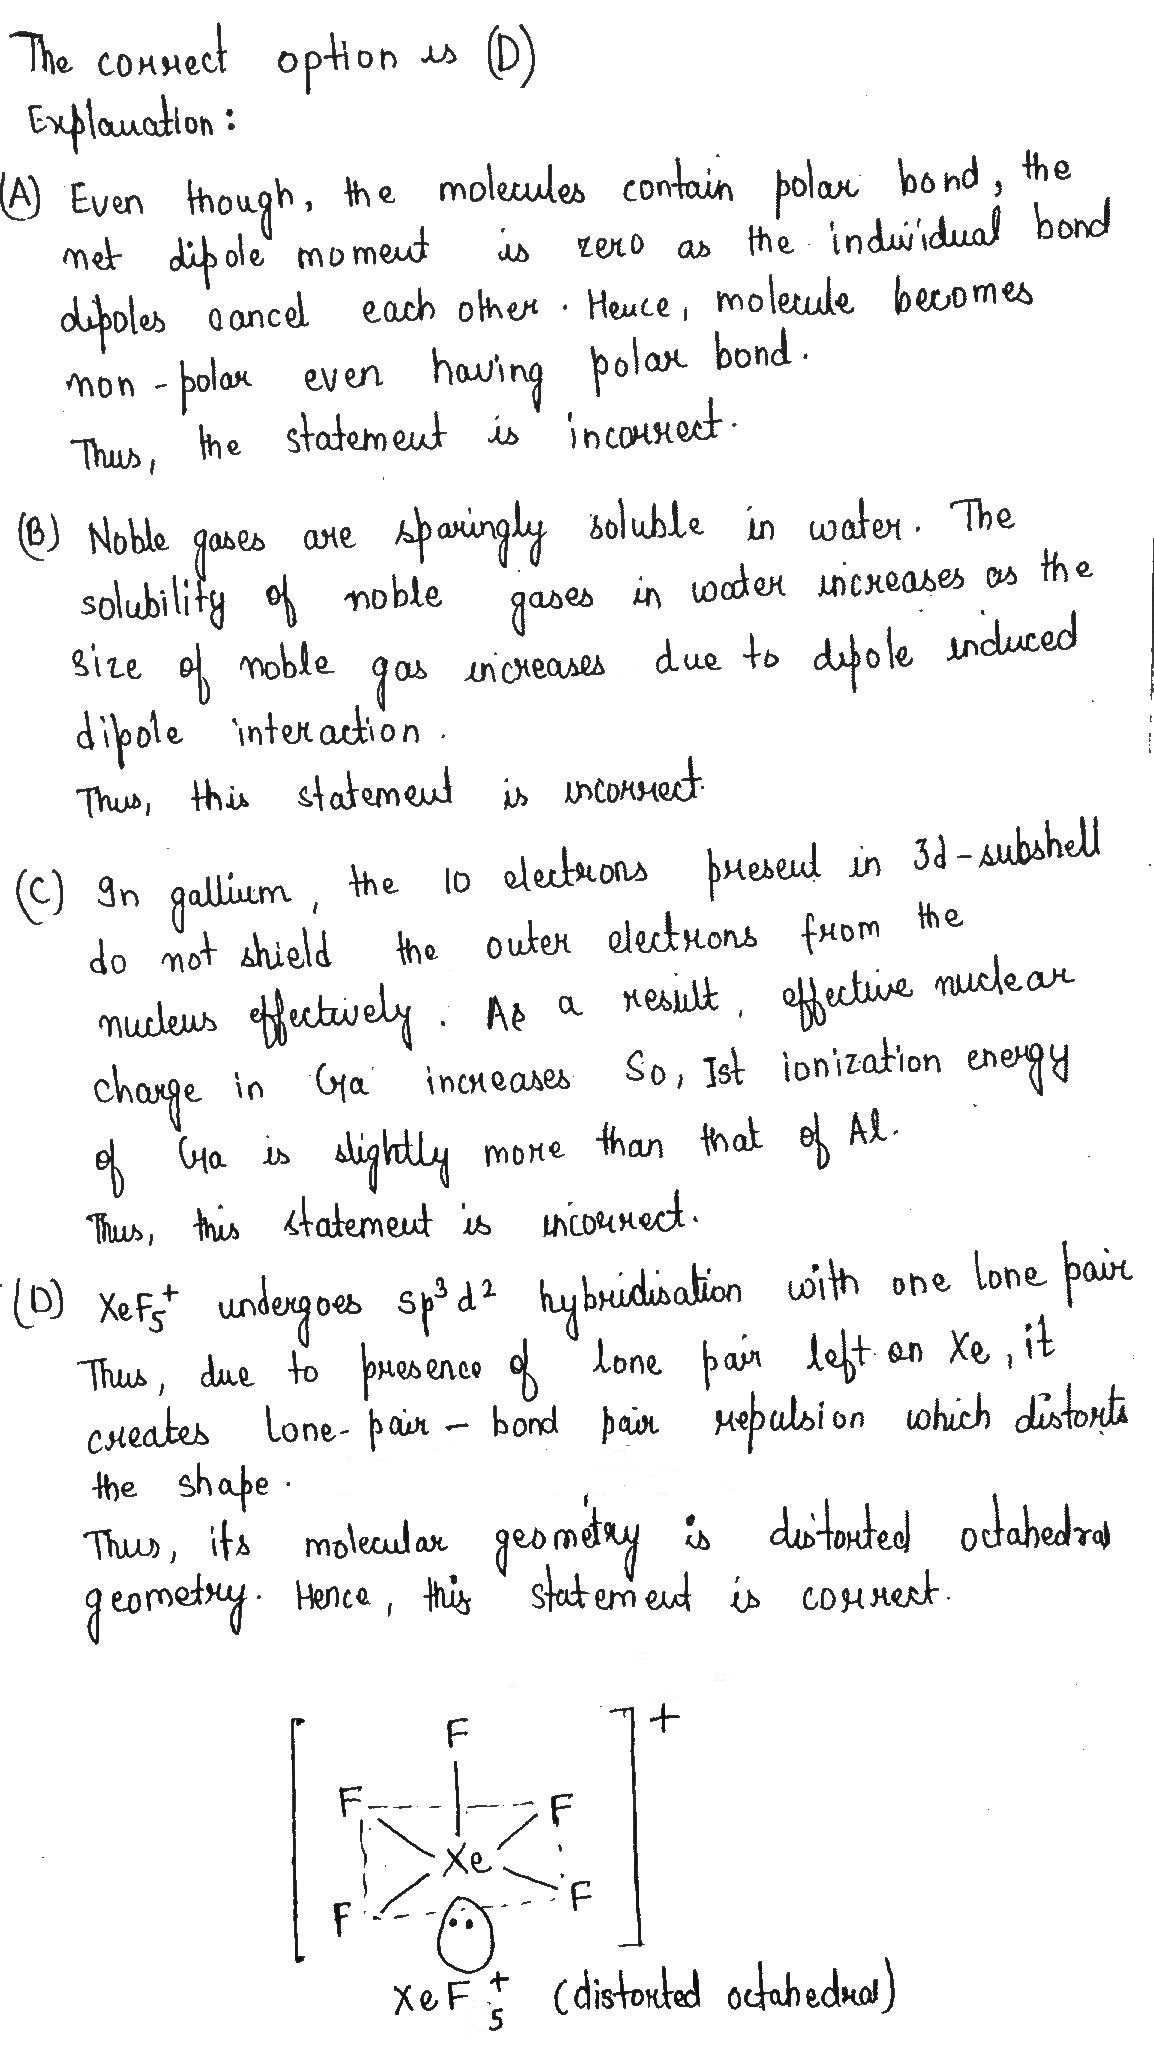 The correct option is (D)
Explanation:
(A) Even though, the molecules contain polar bond, the
net dipole moment is zero as the individual bond
dipoles cancel each other. Hence, molecule becomes
non-polar even having polar bond.
Thus, the statement is incorrect.
(B) Noble gases are sparingly soluble in water. The
solubility of noble gases in water increases as the
size of noble gas increases due to dipole induced
dipole interaction.
Thus, this statement is incorrect.
(C) In gallium, the 10 electrons present in 3d-subshell
do not shield the outer electrons from the
nucleus effectively. As a result, effective nuclear
charge in Ga increases So, Ist ionization energy
of Ga is slightly more than that of Al.
Thus, this statement is incorrect.
(D) XeF₅⁺ undergoes sp³d² hybridisation with one lone pair
Thus, due to presence of lone pair left on Xe, it
creates lone-pair-bond pair repulsion which distorts
the shape.
Thus, its molecular geometry is distorted octahedral
geometry. Hence, this statement is correct.
F +
F F
Xe
F F
XeF₅⁺ (distorted octahedral)